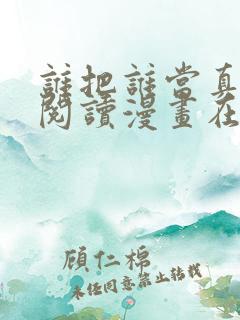 誰把誰當真
閱讀漫畫在
顧仁棉
未經同意禁止轉載